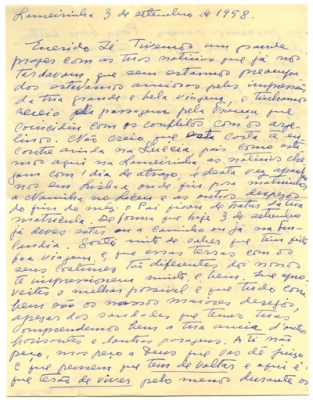 Lameirinha 3 de setembro de 1958.
Querido Zé. Tivemos um grande
prazer com as tuas notícias que já nos
tardavam, que sem estarmos preocupa
dos estávamos ansiosos pelas impressões
da tua grande e bela viagem, e tínhamos
receio pela passagem pela França que
coincidiu com os conflitos com os arge-
linos. Não creio que esta carta te
contre ainda na Suécia pois como esta
mos aqui na Lameirinha as notícias che
gam com 1 dia de atraso, e desta vez
nos em Lisboa onde fui para matricular
a Naninha no liceu e as outras despesas
do fim do mês. O Pai
matrícula. De forma que hoje 3 de setembro
já deves estar a caminho ou já na
landia. Gostei muito de saber que tens feito
boa viagem, e que essas terras com os
seus costumes tão diferentes dos nossos
te impressionem muito e bem. Que apro
veites o melhor possível e que tudo corra
bem são os nossos maiores desejos,
apesar das saudades que temos tuas
compreendemos bem a tua ansia d'outros
horisontes e outras paragens. A ti não
peço, mas peço a Deus que vos dê juizo
e que pensem que tem de voltar e aqui é
que terão de viver pelo menos durante os